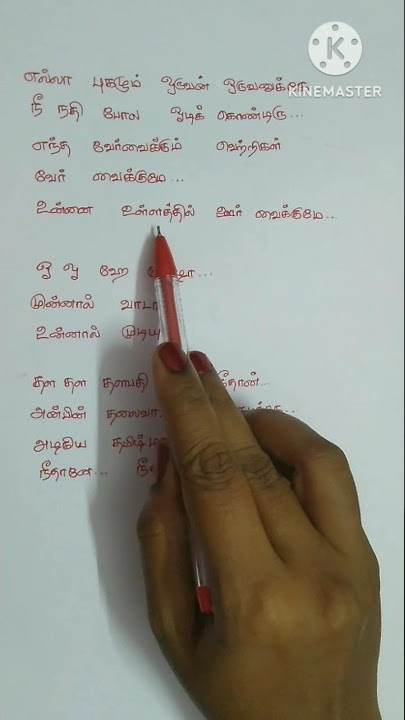 எல்லா புகழும் ஒருவன் ஒருவனுக்கே
நீ நதி போல ஓடிக் கொண்டிரு...
எந்த வேர்வைக்கும் வெற்றிகள்
வேர் வைக்குமே...
உன்னை உள்ளத்தில் ஊர் வைக்குமே...
முன்னால் வாடா
உன்னால்
தள தள தளபதி நீதான்...
அன்பின் தலைவா
அழகிய
நீதானே...
KINEMASTER